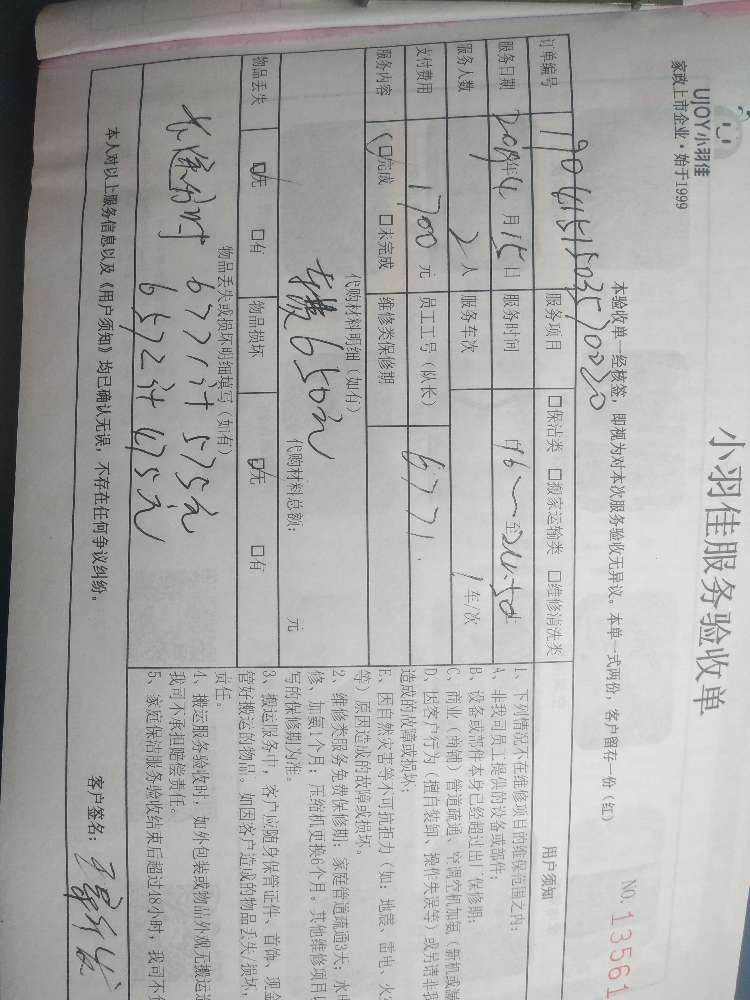 UJOY小羽佳
家政上市企业·始于1999
小羽佳服务验收单
NO. 13561
本验收单一经核签，即视为对本次服务验收无异议。本单一式两份，客户留存一份（红）
订单编号 服务项目 □保洁类 □搬家运输类 □维修清洗类
服务日期 年4月15日 服务时间 至
服务人数 2人 服务车次 1车/次
支付费用 1700元 员工工号（队长） 6771
服务内容 ☑完成 □未完成 维修类保修期
代购材料明细（如有） 代购材料总额： 元
650元
物品丢失 ☑无 □有 物品损坏 ☑无 □有
物品丢失或损坏明细填写（如有）
6771计575元
6572计475元
用户须知
1、下列情况不在维修项目的维保范围之内：
A、非我司员工提供的设备或部件；
B、设备或部件本身已经超过出厂保修期；
C、商业（商铺）管道疏通、空调空机加氨（新机或漏
D、因客户行为（擅自装卸、操作失误等）或另请非我
造成的故障或损坏；
E、因自然灾害等不可抗拒力（如：地震、雷电、火
等）原因造成的故障或损坏。
2、维修类服务免费保修期：家庭管道疏通3天；水
修、加氨1个月；压缩机更换6个月。其他维修项目
写的保修期为准。
3、搬运服务中，客户应随身保管证件、首饰、现金
管好搬运的物品。如因客户造成的物品丢失/损坏，
责任。
4、搬运服务验收时，如外包装或物品外观无搬运
我司不承担赔偿责任。
5、家庭保洁服务验收结束后超过48小时，我司不
本人对以上服务信息以及《用户须知》均已确认无误，不存在任何争议纠纷。
客户签名：